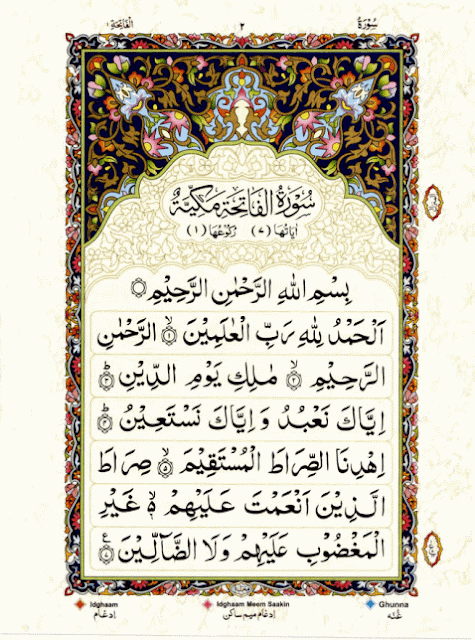 سُوْرَةُ ٢ اَلْفَاتِحَةِ
سُوْرَةُ الْفَاتِحَةِ مَكِّيَّةٌ
اٰيَاتُهَا (٧) رُكُوْعُهَا (١)
بِسْمِ اللّٰهِ الرَّحْمٰنِ الرَّحِيْمِ
اَلْحَمْدُ لِلّٰهِ رَبِّ الْعٰلَمِيْنَ ۙ﴿١﴾ الرَّحْمٰنِ
الرَّحِيْمِ ۙ﴿٢﴾ مٰلِكِ يَوْمِ الدِّيْنِ ؕ﴿٣﴾
اِيَّاكَ نَعْبُدُ وَ اِيَّاكَ نَسْتَعِيْنُ ؕ
اِهْدِنَا الصِّرَاطَ الْمُسْتَقِيْمَ ۙ﴿٥﴾ صِرَاطَ
الَّذِيْنَ اَنْعَمْتَ عَلَيْهِمْ ۙ غَيْرِ
الْمَغْضُوْبِ عَلَيْهِمْ وَلَا الضَّآلِّيْنَ
Idghaam Idghaam Meem Saakin Ghunna
اِدغام اِدغام میم ساکن غُنّه